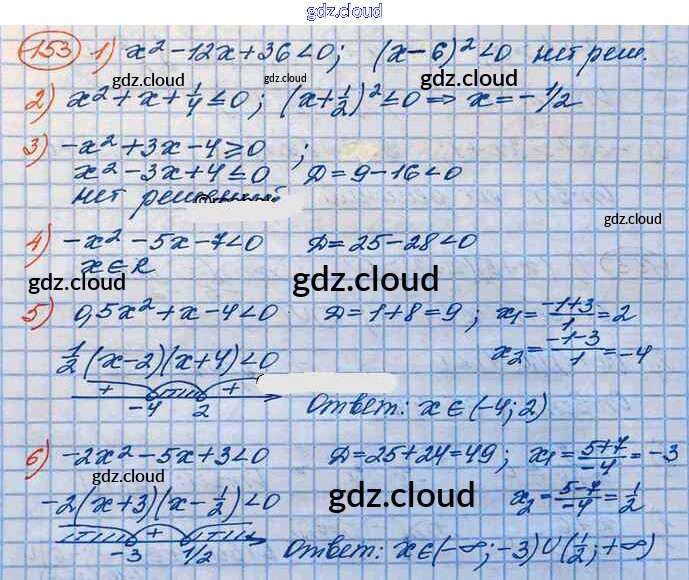 gdz.cloud
153 1) x² - 12x + 36 < 0; (x - 6)² < 0 нет реш.
gdz.cloud gdz.cloud
2) x² + x + 1/4 ≤ 0; (x + 1/2)² ≤ 0 => x = - 1/2
3) -x² + 3x - 4 ≥ 0 ;
x² - 3x + 4 ≤ 0 D = 9 - 16 < 0
нет решений
gdz.cloud
4) -x² - 5x - 7 < 0 D = 25 - 28 < 0
x ∈ R
gdz.cloud gdz.cloud gdz.cloud
5) 0,5x² + x - 4 < 0 D = 1 + 8 = 9 ; x₁ = (-1+3)/1 = 2
1/2 (x - 2)(x + 4) < 0 x₂ = (-1-3)/1 = -4
+ +
-4 2 Ответ: x ∈ (-4; 2)
6) -2x² - 5x + 3 < 0 D = 25 + 24 = 49 ; x₁ = (5+7)/-4 = -3
gdz.cloud gdz.cloud gdz.cloud
-2(x + 3)(x - 1/2) < 0 x₂ = (5-7)/-4 = 1/2
+
-3 1/2 Ответ: x ∈ (-∞; -3) U (1/2; +∞)